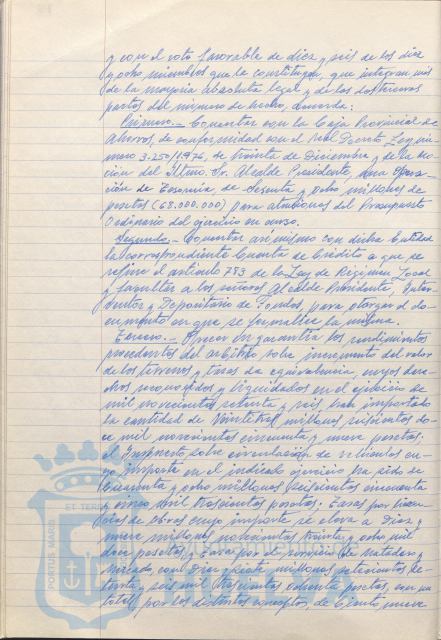 y con el voto favorable de diez y seis de los diez
y ocho miembros que la constituyen, que integran más
de la mayoría absoluta legal y de las dos terceras
partes del número de hecho, acuerda:
Primero.- Concertar con la Caja Provincial de
Ahorros, de conformidad con el Real Decreto Ley nú-
mero 3.250/1.976, de treinta de Diciembre y de la
ción del Iltmo. Sr. Alcalde Presidente, una Opera-
ción de Tesorería de Sesenta y ocho millones de
pesetas (68.000.000) para atenciones del Presupuesto
Ordinario del ejercicio en curso.
Segundo.- Concertar asimismo con dicha Entidad
la correspondiente Cuenta de Crédito a que se
refiere el artículo 783 de la Ley de Régimen Local
y facultar a los señores Alcalde Presidente, Inter-
ventor y Depositario de Fondos, para otorgar el do-
cumento en que se formalice la misma.
Tercero.- Ofrecer en garantía los rendimientos
procedentes del arbitrio sobre incremento del valor
de los terrenos y tasas de equivalencia, cuyos dere-
chos reconocidos y liquidados en el ejercicio de
mil novecientos setenta y seis han importado
la cantidad de Veintitrés millones seiscientas do-
ce mil novecientas cincuenta y nueve pesetas;
el Impuesto sobre circulación de vehículos cu-
yo importe en el indicado ejercicio ha sido de
Cincuenta y ocho millones seiscientas cincuenta
y cinco mil trescientas pesetas; Tasas por licen-
cias de obras cuyo importe se eleva a Diez y
nueve millones novecientas treinta y ocho mil
doce pesetas y Tasas por el servicio de Matadero y
Mercado con Diez y siete millones setecientas se-
tenta y seis mil trescientas ochenta pesetas, con un
total por los distintos conceptos de Ciento nueve
PORTUS MARIS ET TERRAE
HUELVA